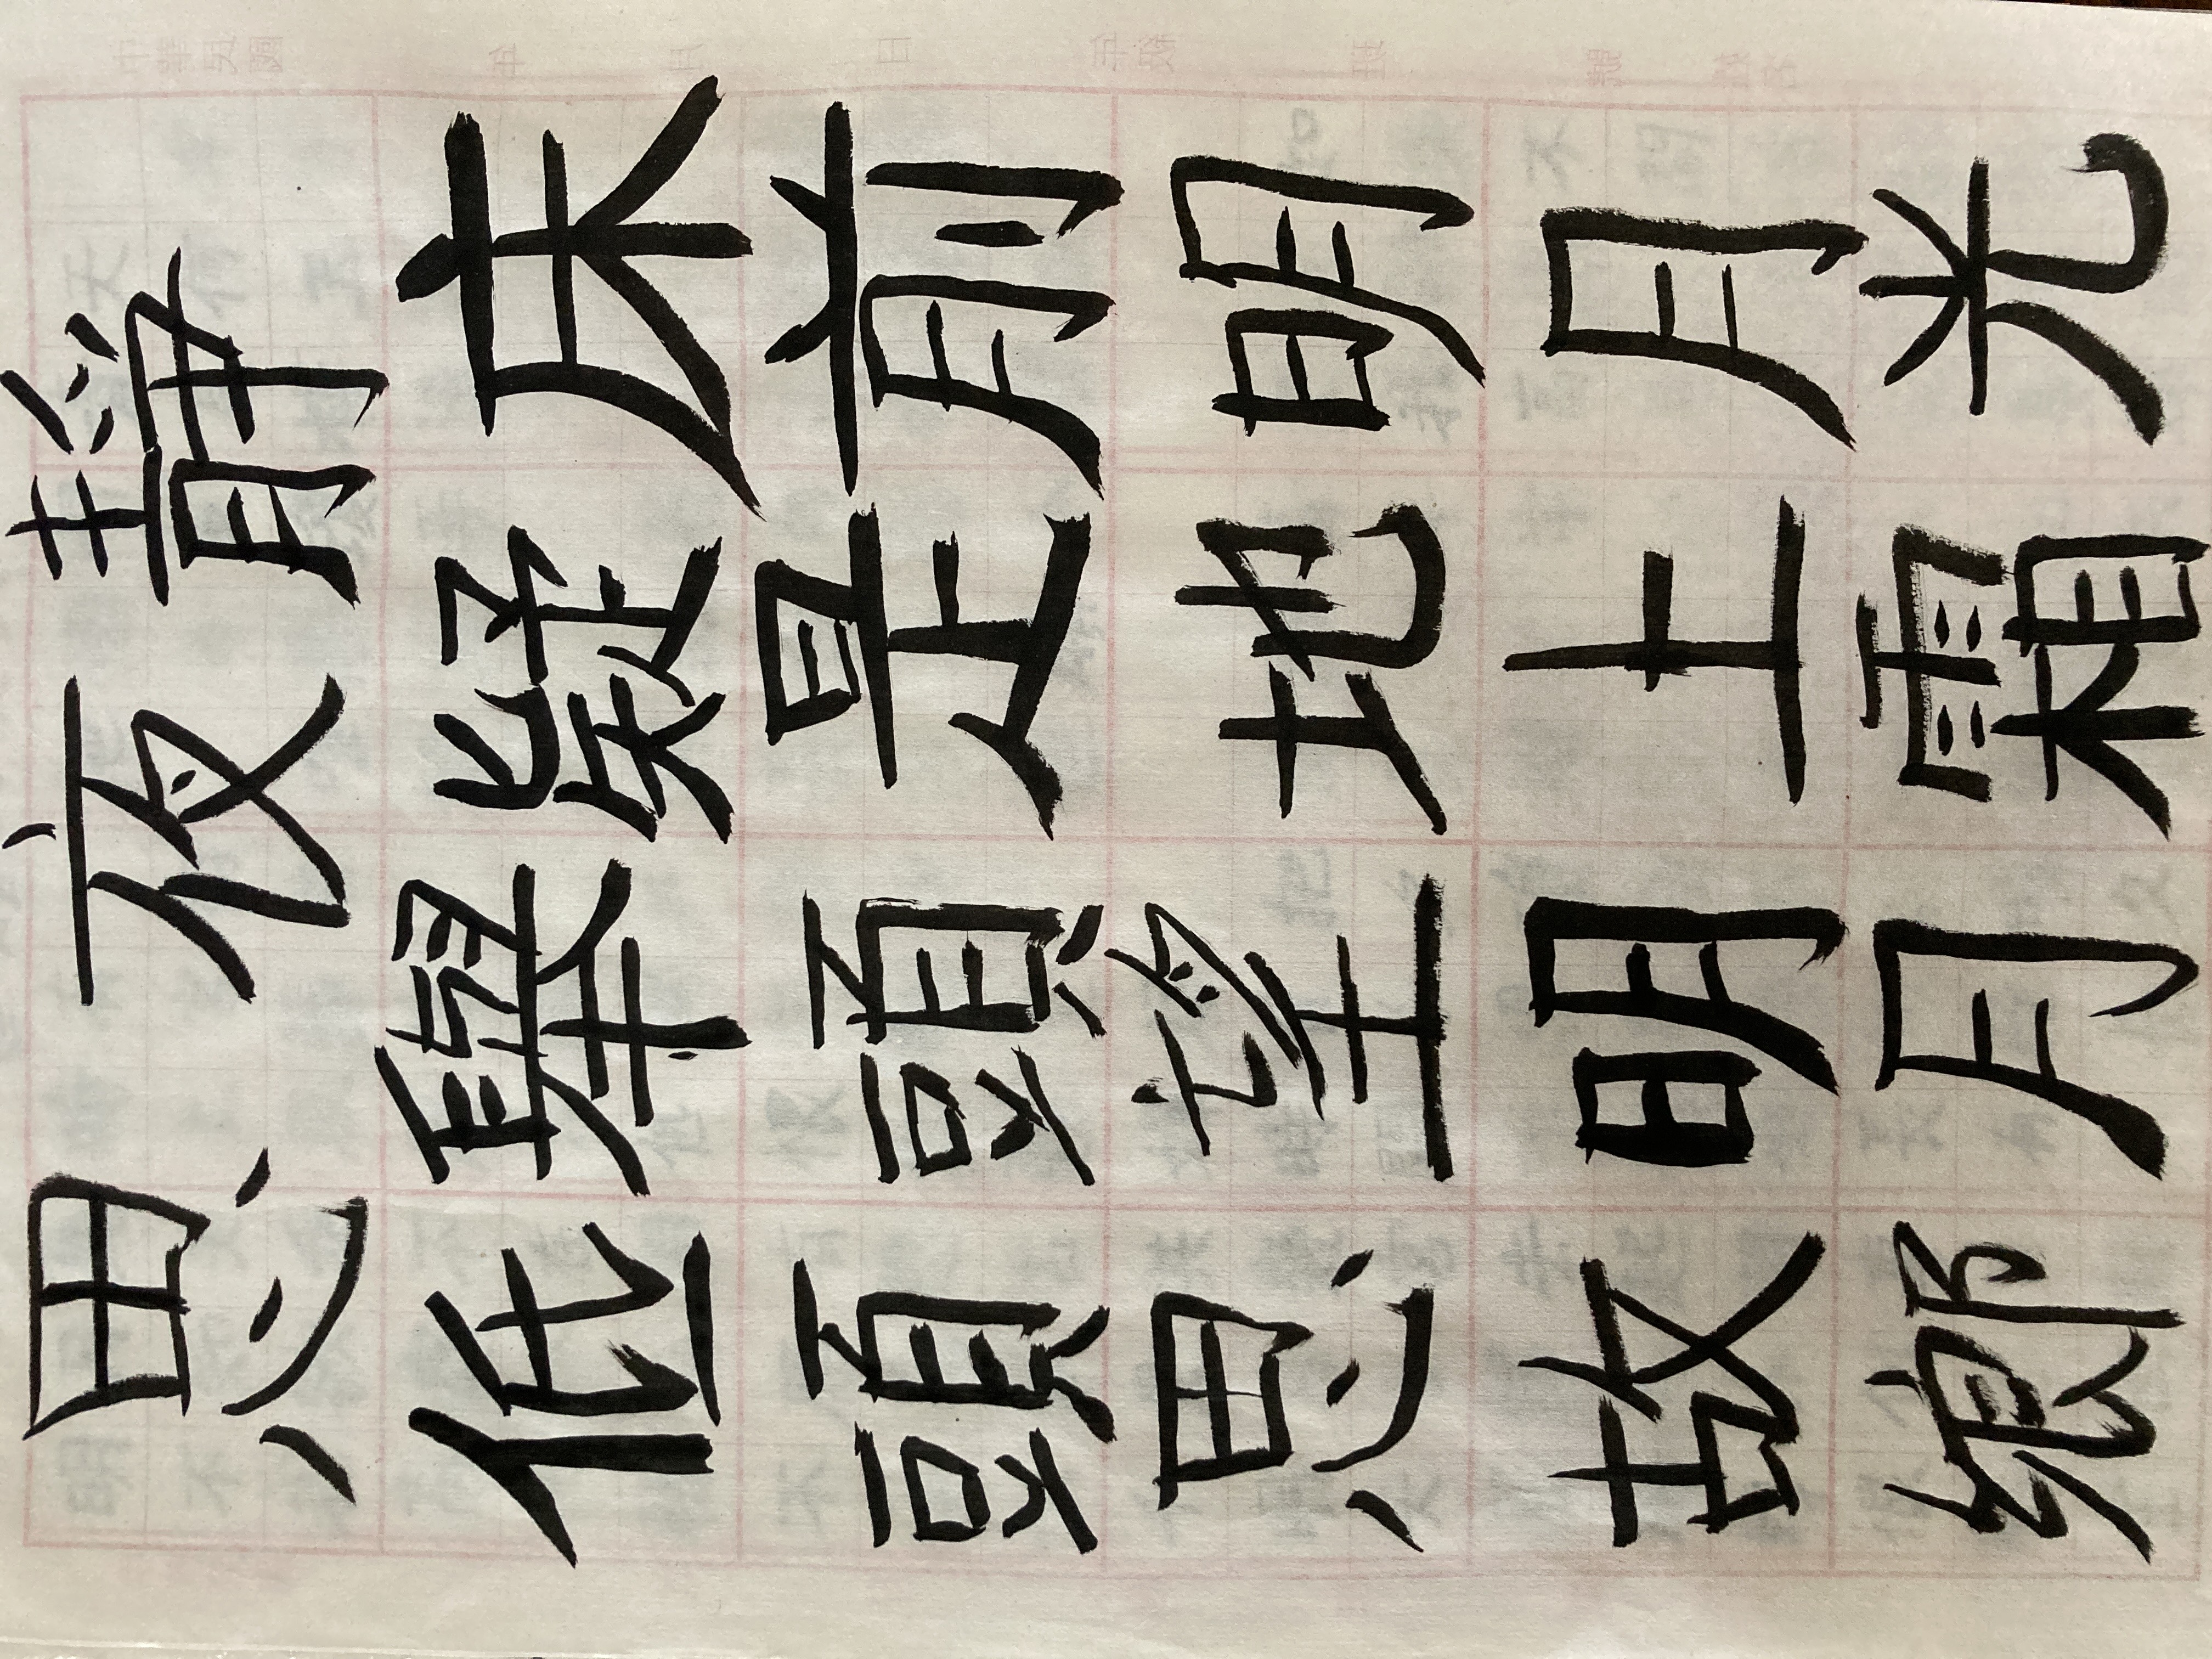 靜夜思
床前明月光
疑是地上霜
舉頭望明月
低頭思故鄉
中華民國 年 月 日 年級 班 號 姓名